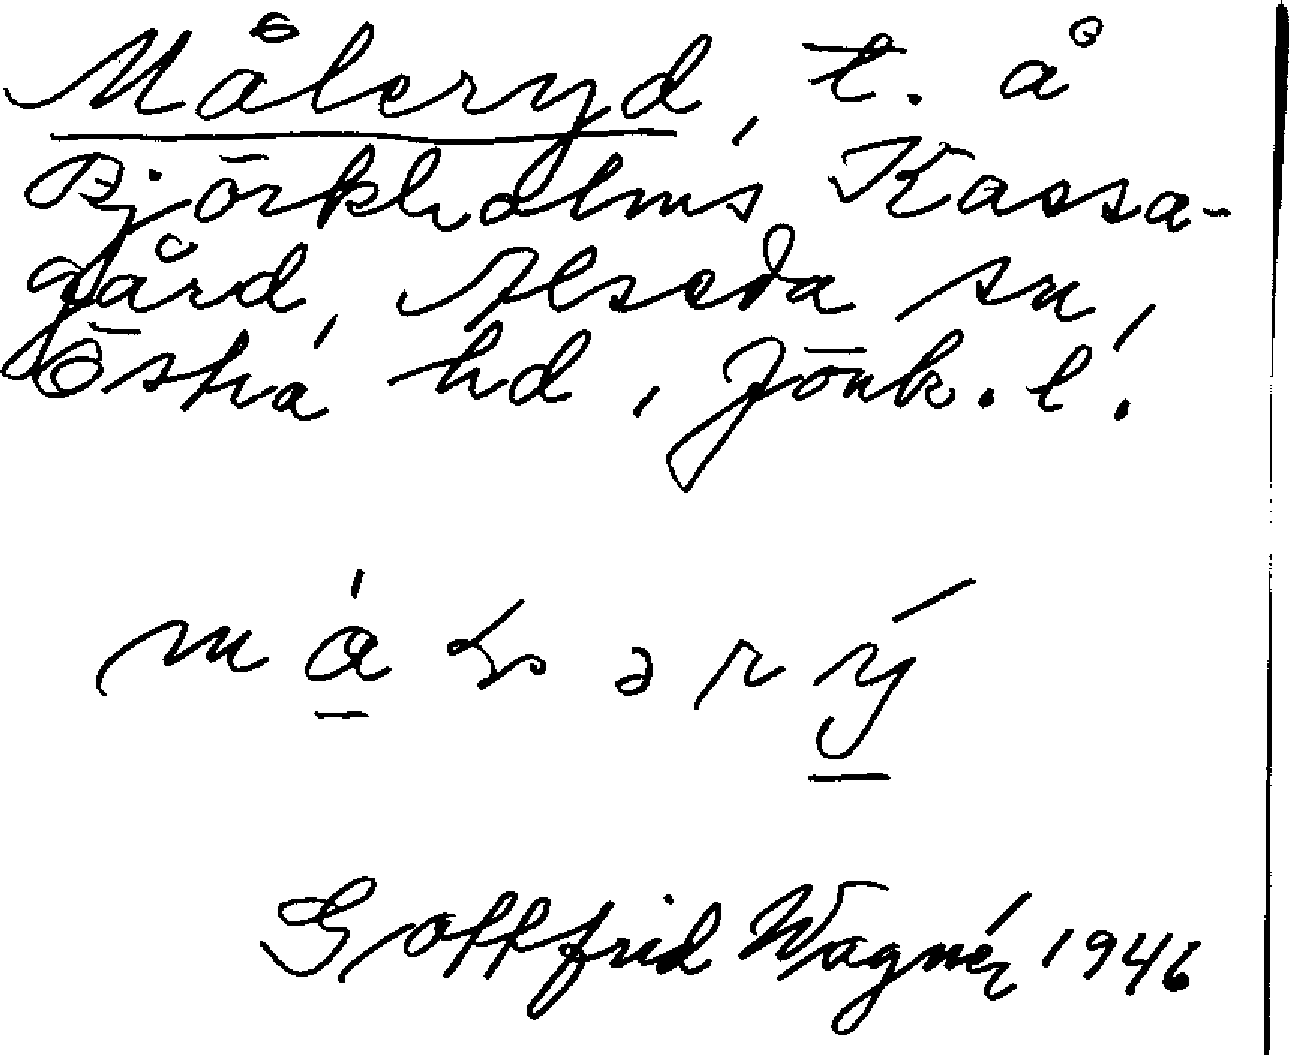 Måleryd, t. å
Björkholms Kassa-
gård, Alseda sn,
Östra hd, Jönk. l.
Gottfrid Wagnér, 1946